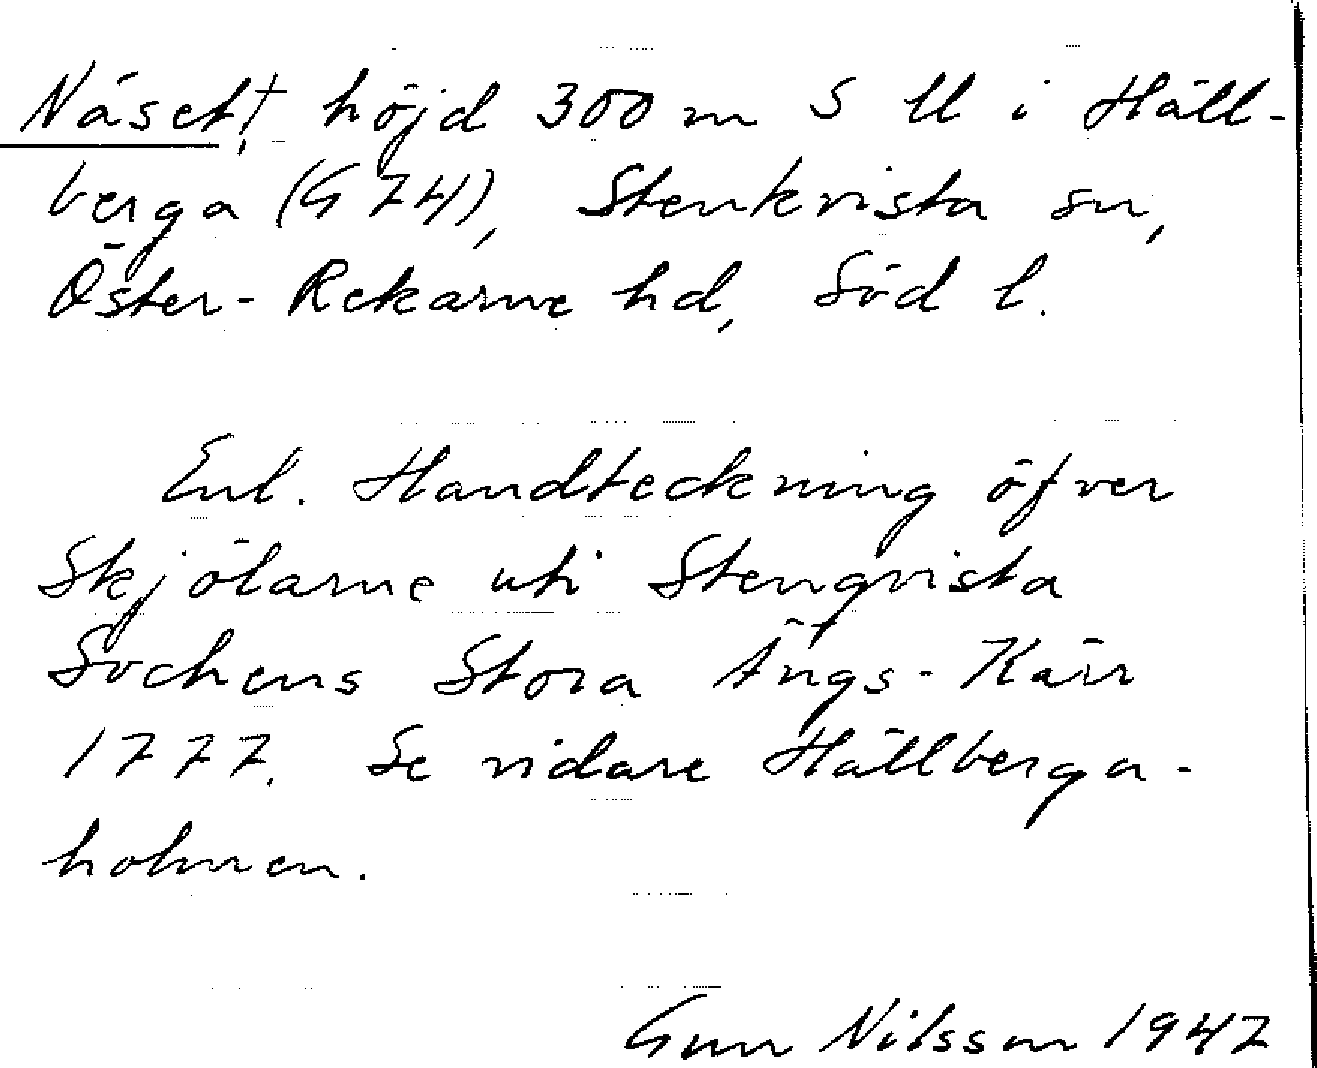 Näset†, höjd 300 m S ll i Häll-
berga (G 74), Stenkvista sn,
Öster-Rekarne hd, Söd l.
Enl. Handteckning öfver
Skjölarne uti Stenqvista
Sochens Stora Ängs-Kärr
1777. Se vidare Hällberga-
holmen.
Gun Nilsson 1947